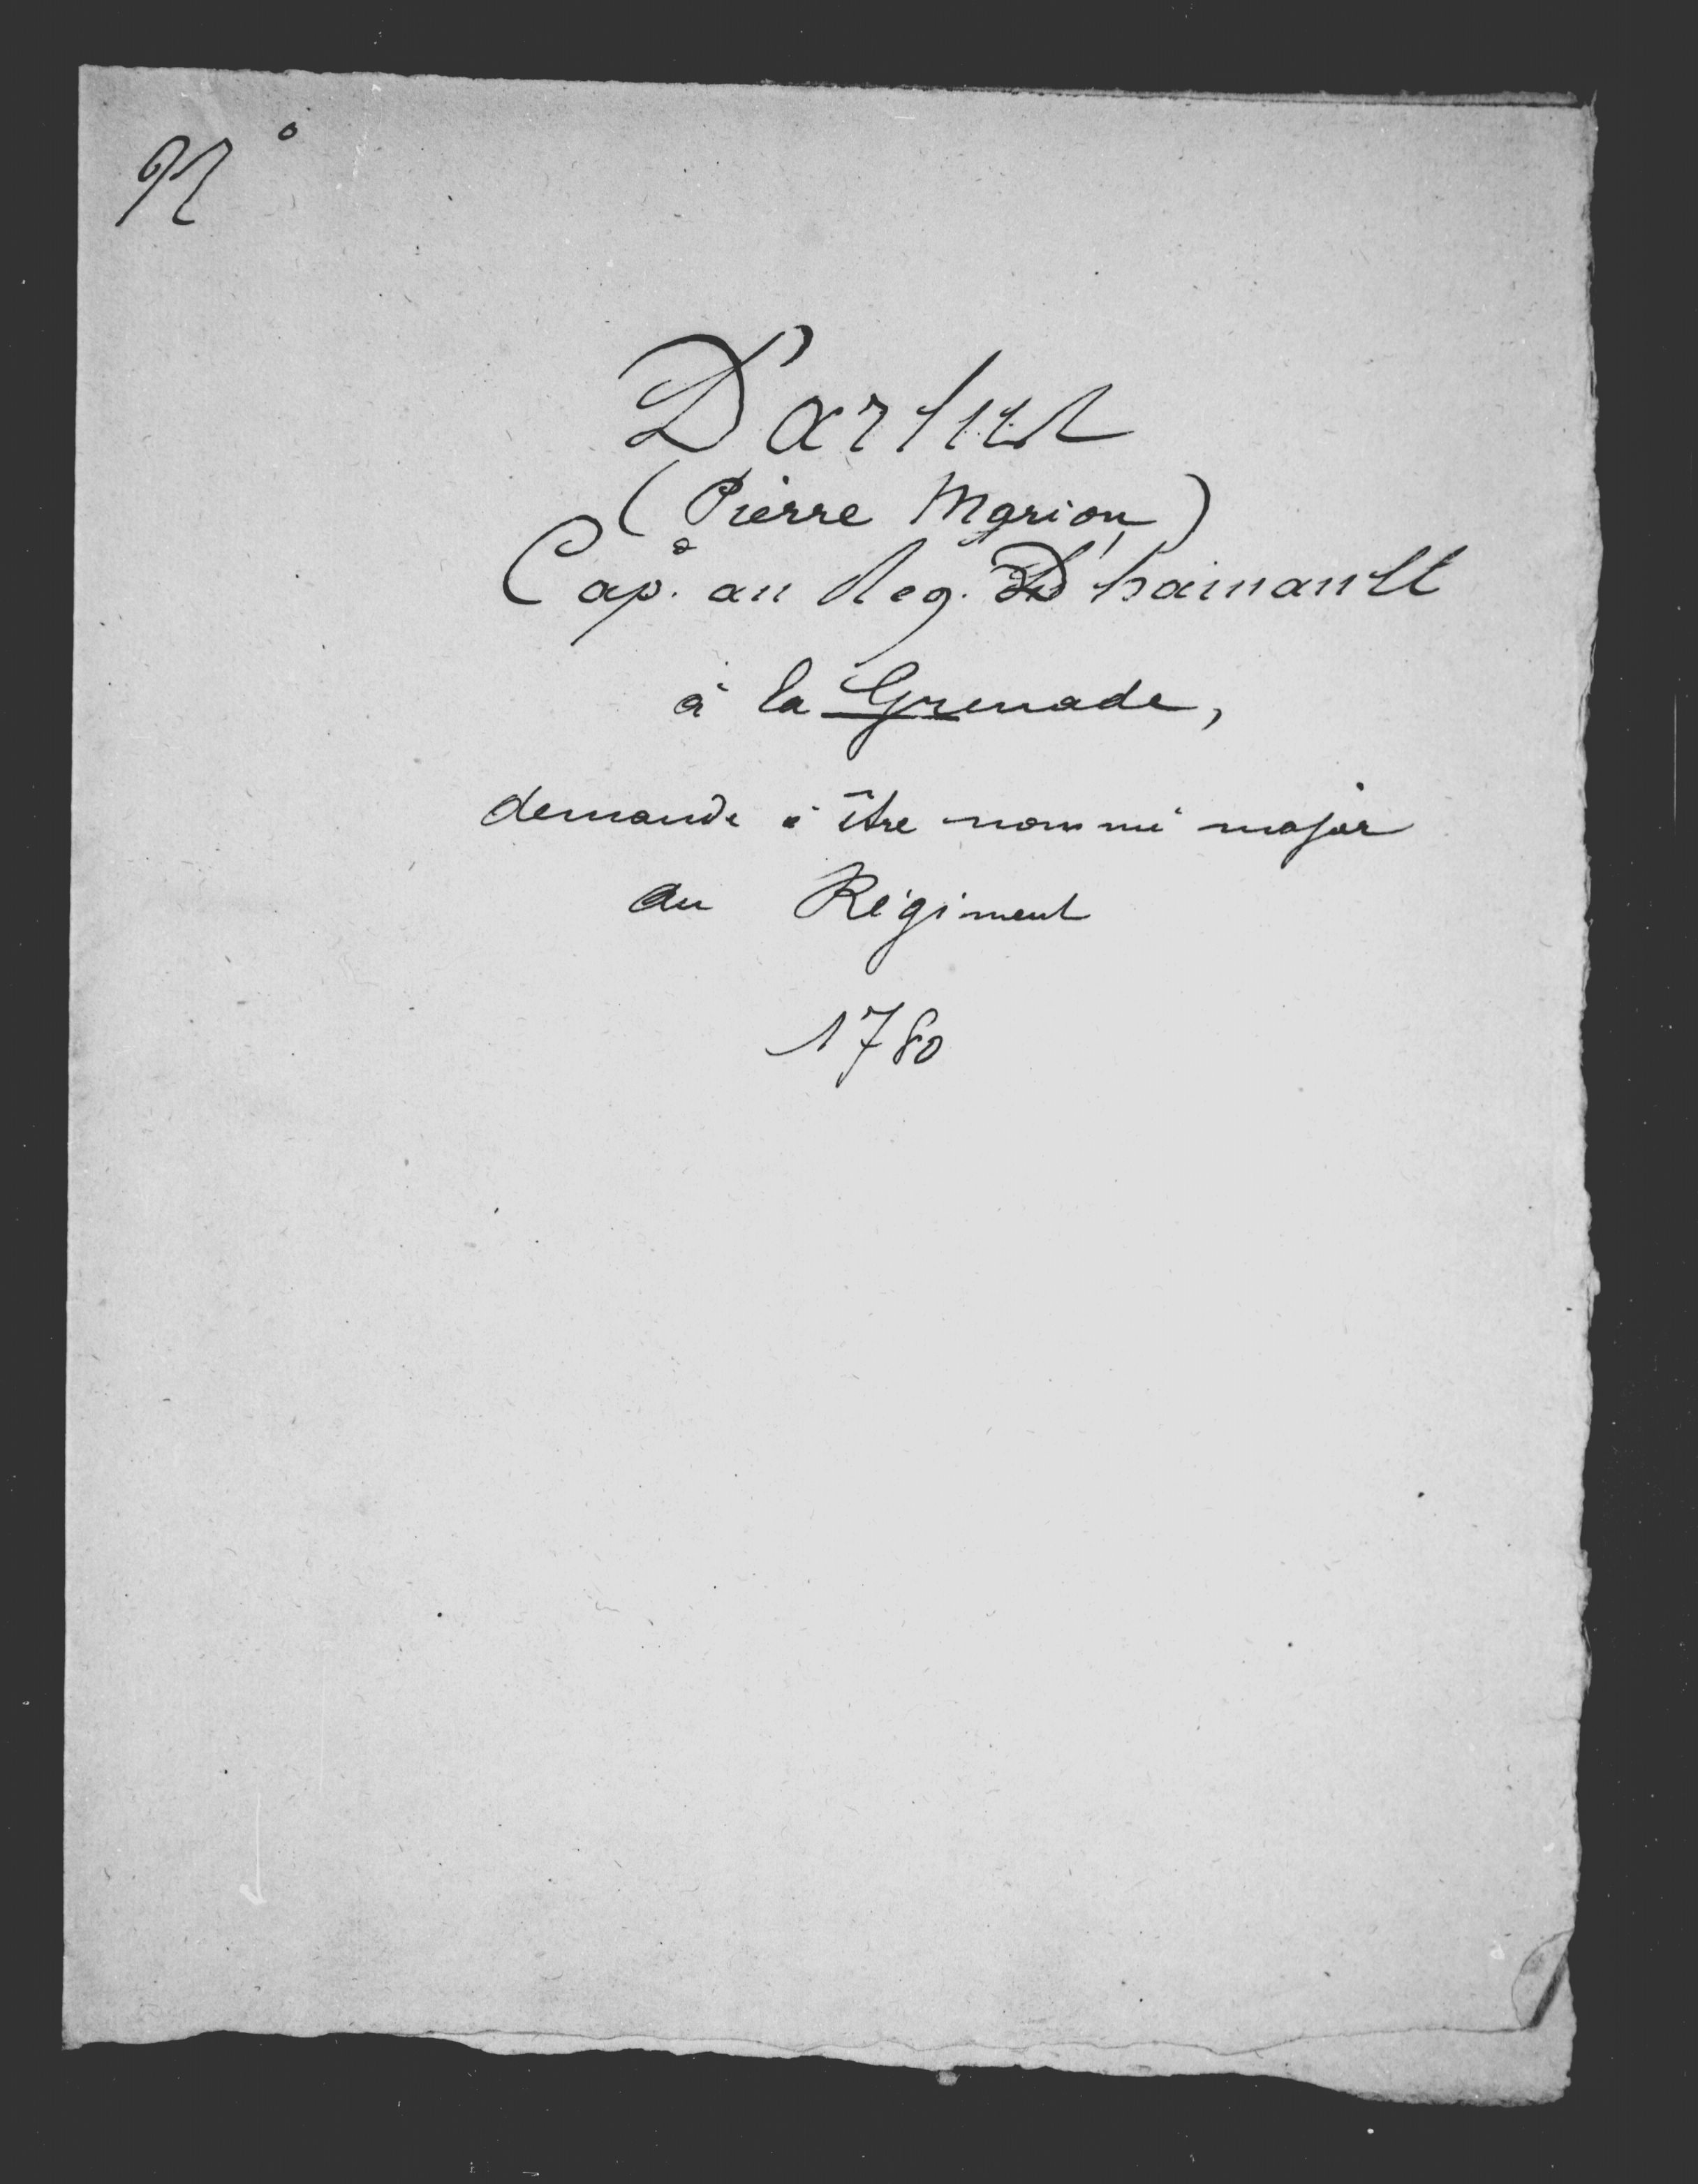 N°
Darlut
(Pierre Marion)
Cap.e au Reg. D'hainault
à la Grenade,
demande à être nommé major
au Régiment
1780